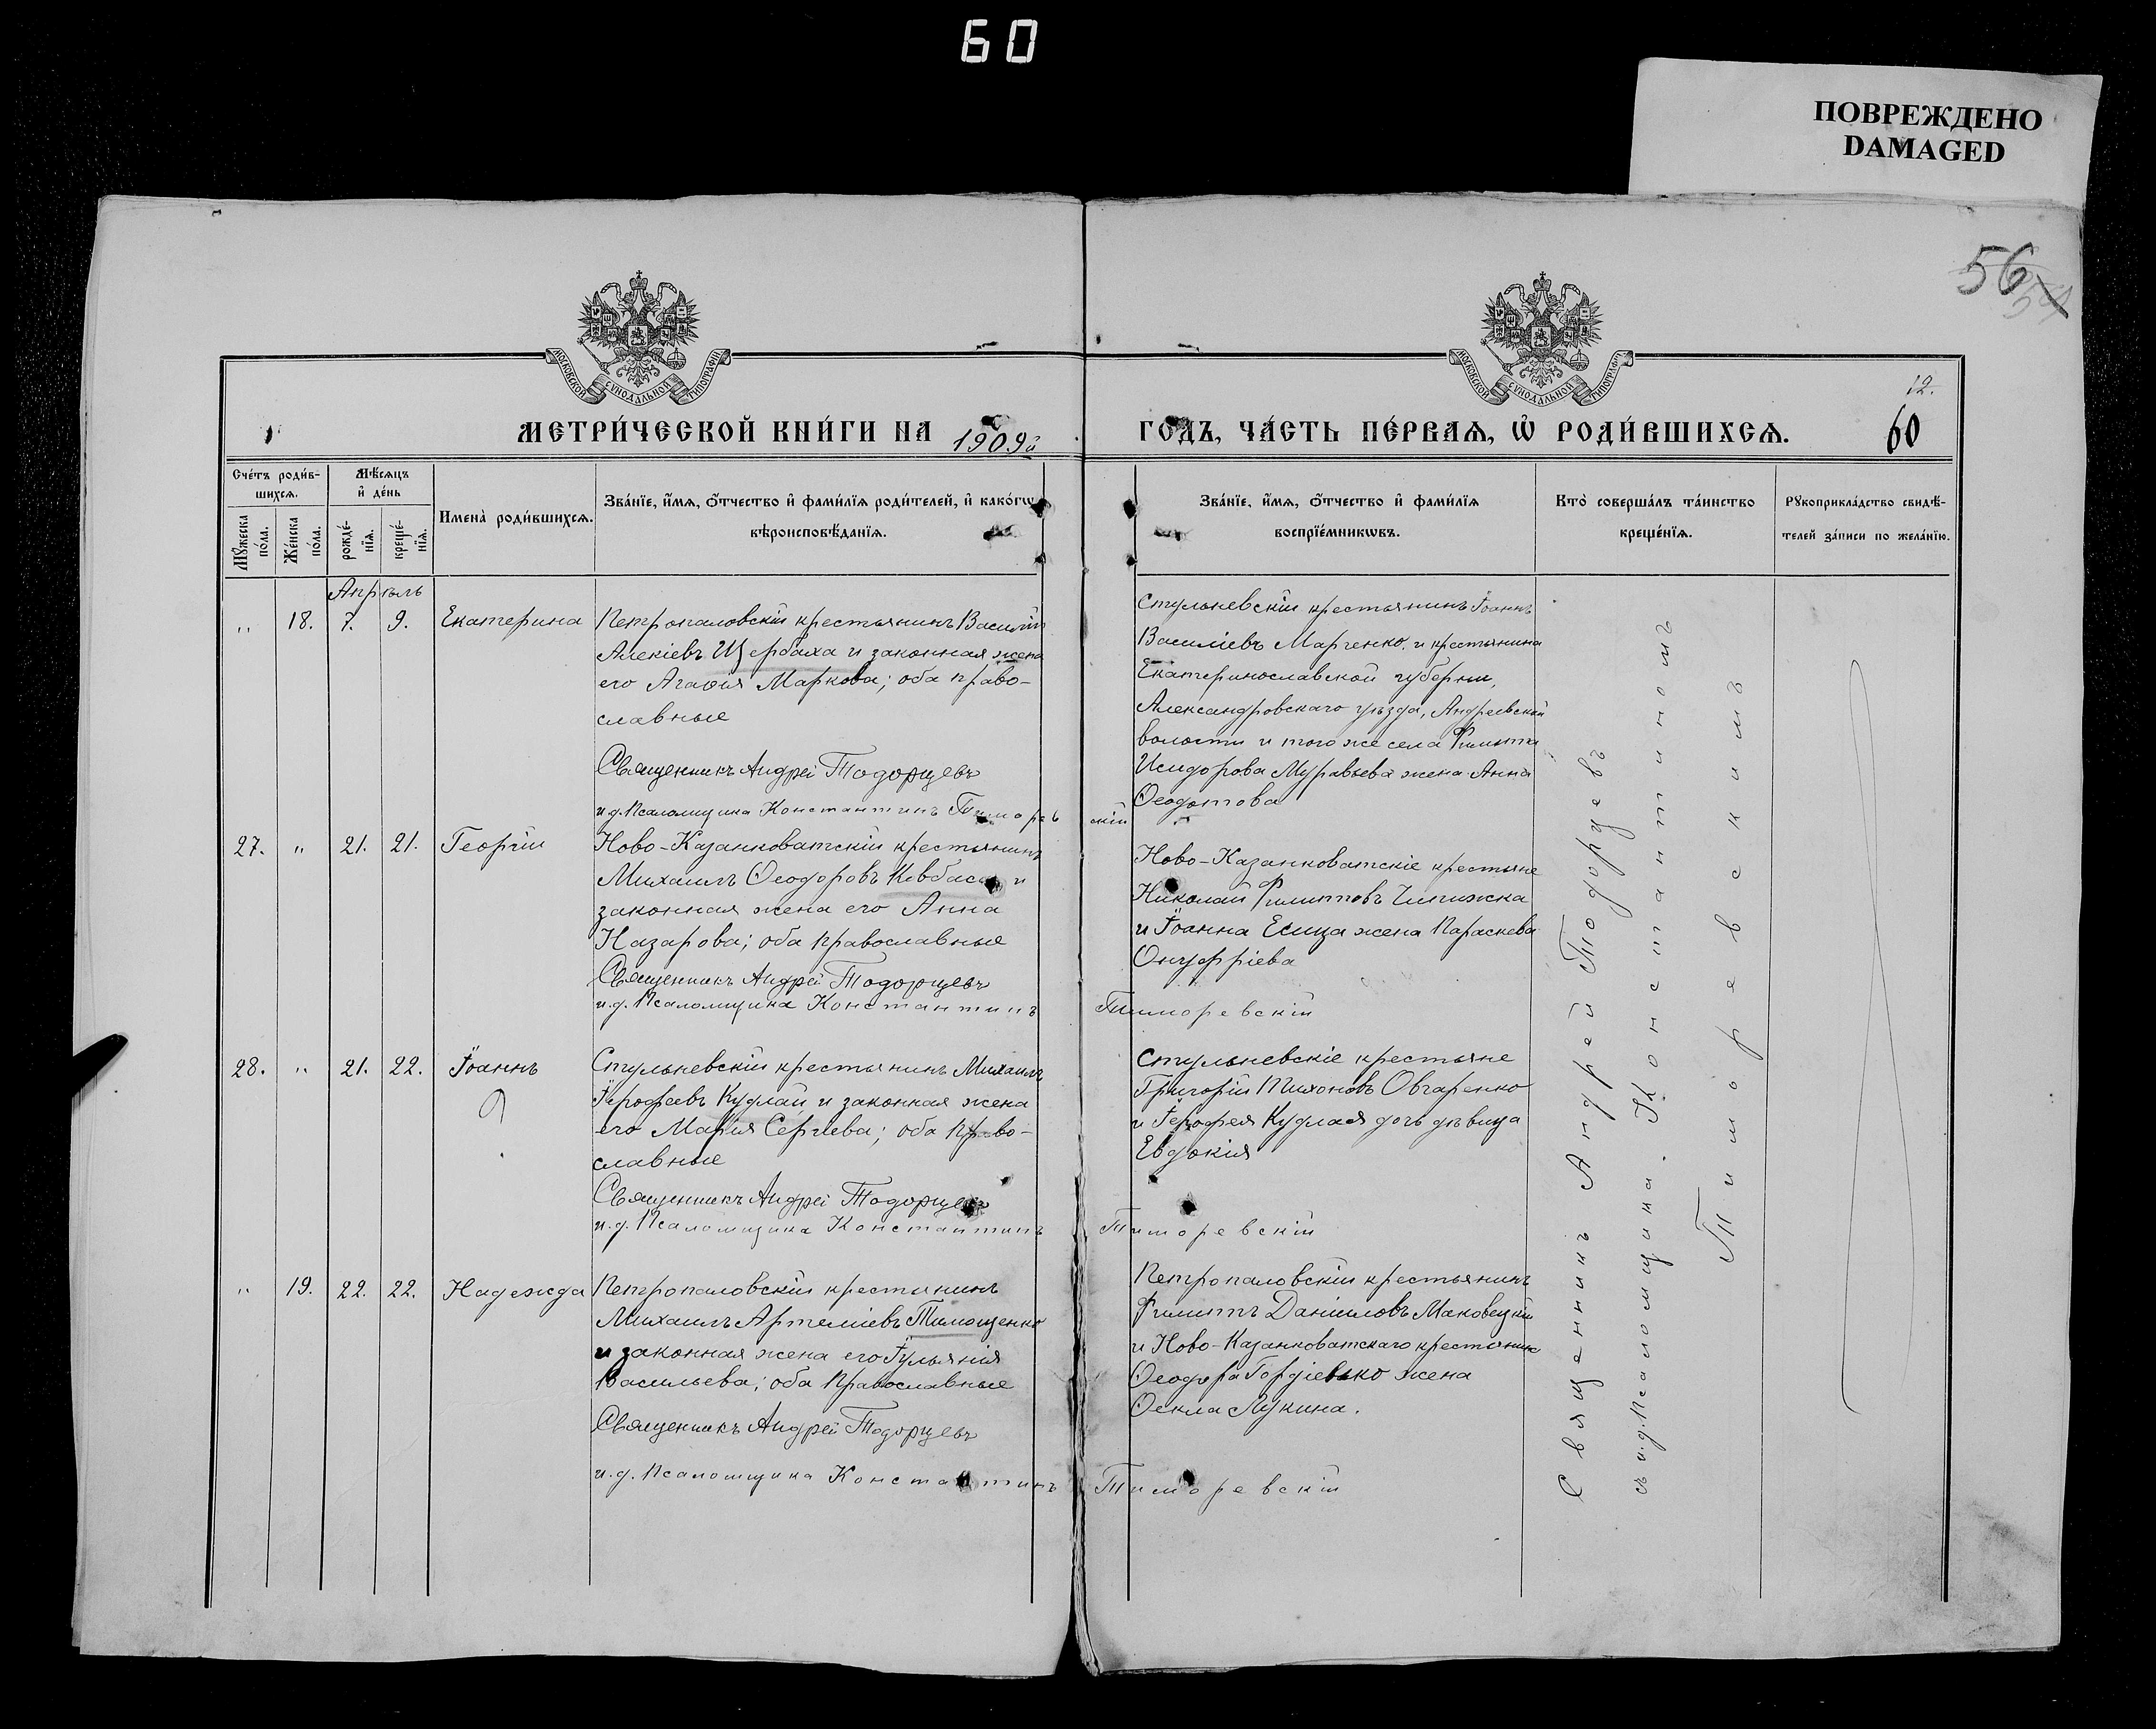 60
ПОВРЕЖДЕНО
DAMAGED
56
12.
60
МОСКОВСКОЙ СѴНОДАЛЬНОЙ ТИПОГРАФІИ
МОСКОВСКОЙ СѴНОДАЛЬНОЙ ТИПОГРАФІИ
МЕТРИ́ЧЕСКОЙ КНИ́ГИ НА 1909й ГОДЪ, ЧА́СТЬ ПЕ́РВАѦ, Ѡ РОДИ́ВШИХСѦ.
Сче́тъ роди́в-
шихсѧ.
Мꙋ́жеска по́ла.
Же́нска по́ла.
Мѣ́сѧцъ
и҆ де́нь
рожде́-
нїѧ.
креще́-
нїѧ.
Имена̀ роди́вшихсѧ.
Зва́нїе, и҆́мѧ, ѻ҆́тчество и҆ фами́лїѧ роди́телей, и҆ како́гѡ
вѣроисповѣ́данїѧ.
Зва́нїе, и҆́мѧ, ѻ҆́тчество и҆ фами́лїѧ
воспрїе́мникѡвъ.
Кто̀ соверша́лъ та́инство
креще́нїѧ.
Рꙋкоприкла́дство свидѣ́-
телей за́писи по жела́нїю.
Апрѣль
„ 18. 7. 9. Екатерина
Петропаловскій крестьянинъ Василій
Алекіевъ Щербаха и законная жена
его Агаѳія Маркова; оба право-
славные
Священникъ Андрей Тодорцевъ
и.д. Псаломщика Константинъ Тиморевскій
Стульневскій крестьянинъ Іоаннъ
Василіевъ Марченко, и крестьянина
Екатеринославской губерніи,
Александровскаго уѣзда, Андреевской
волости и того же села Филиппа
Исидорова Муравьева жена Анна
Ѳеодотова
27. „ 21. 21. Георгій
Ново-Казанковатскій крестьянинъ
Михаилъ Ѳеодоровъ Ковбаса и
законная жена его Анна
Назарова; оба православные
Священникъ Андрей Тодорцевъ
и.д. Псаломщика Константинъ Тиморевскій
Ново-Казанковатскіе крестьяне
Николай Филипповъ Чипижка
и Іоанна Есица жена Параскева
Онуфріева
28. „ 21. 22. Іоаннъ
Стульневскій крестьянинъ Михаилъ
Іерофеевъ Кудлай и законная жена
его Марія Сергіева; оба право-
славные
Священникъ Андрей Тодорцевъ
и.д. Псаломщика Константинъ Тиморевскій
Стульневскіе крестьяне
Григорій Тихоновъ Овчаренко
и Іерофея Кудлая дочь дѣвица
Евдокія
„ 19. 22. 22. Надежда
Петропаловскій крестьянинъ
Михаилъ Артеміевъ Тимощенко
и законная жена его Іульянія
Васильева; оба православные
Священникъ Андрей Тодорцевъ
и.д. Псаломщика Константинъ Тиморевскій
Петропаловскій крестьянинъ
Филиппъ Даніиловъ Маковецкій
и Ново-Казанковатскаго крестьянина
Ѳеодора Гордіевько жена
Ѳекла Лукина.
Священникъ Андрей Тодорцевъ
съ и.д. Псаломщика. Константиномъ
Тиморевскимъ